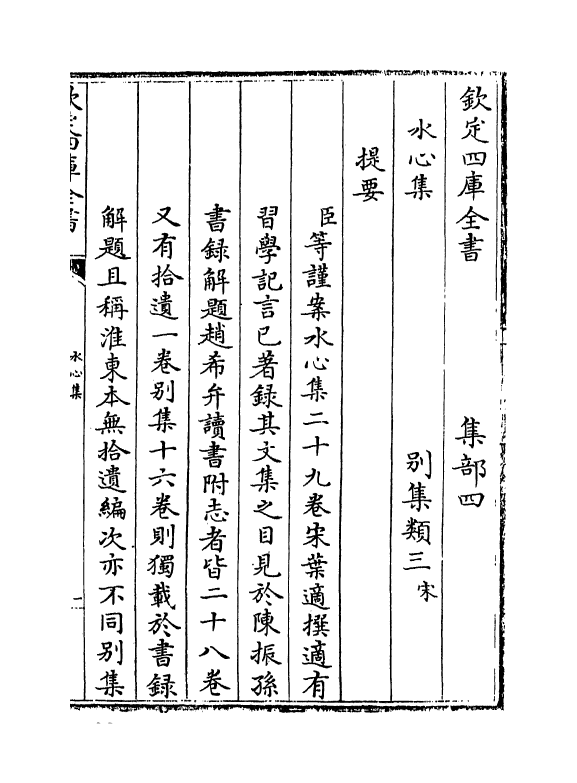 欽定四庫全書　集部四
水心集　別集類三宋
提要
臣等謹案水心集二十九卷宋葉適撰適有
習學記言已著録其文集之目見於陳振孫
書録解題趙希弁讀書附志者皆二十八卷
又有拾遺一卷別集十六卷則獨載於書録
解題且稱淮東本無拾遺編次亦不同別集
欽定四庫全書
水心集
一